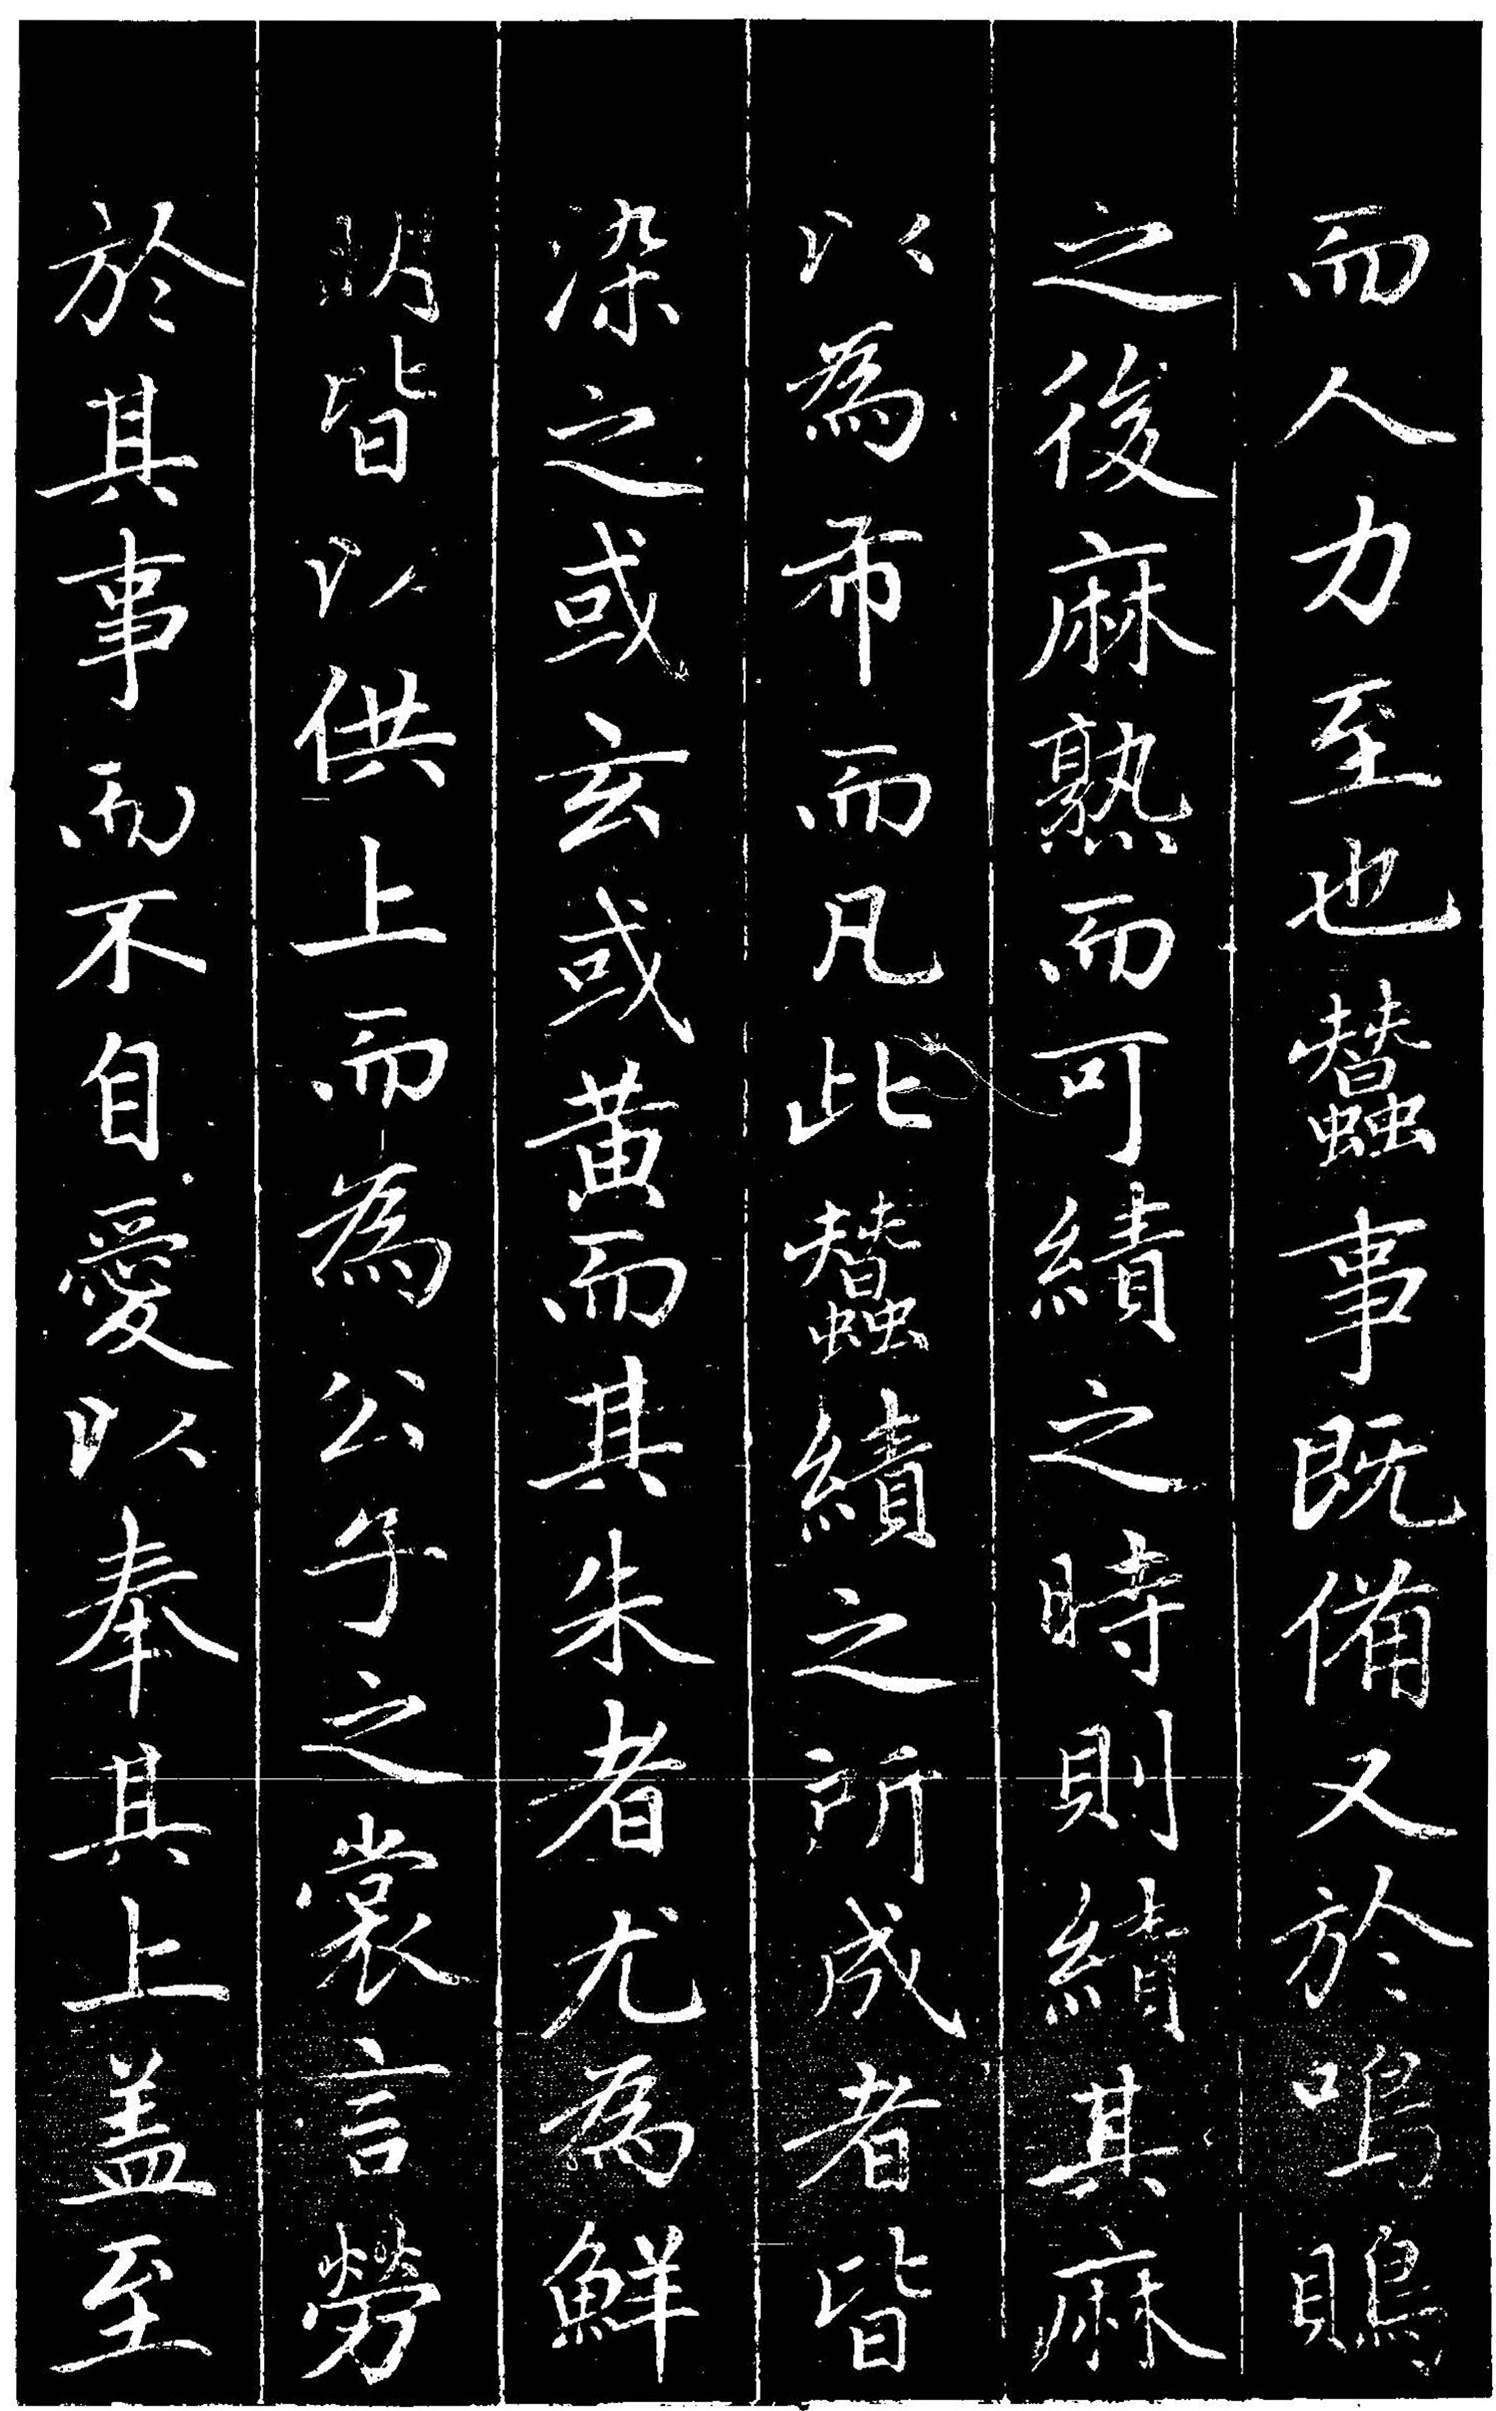 而人力至也蠶事既備又於鳴鵙
之後麻熟而可績之時則績其麻
以為布而凡此蠶績之所成者皆
染之或玄或黃而其朱者尤為鮮
明皆以供上而為公子之裳言勞
於其事而不自愛以奉其上盖至